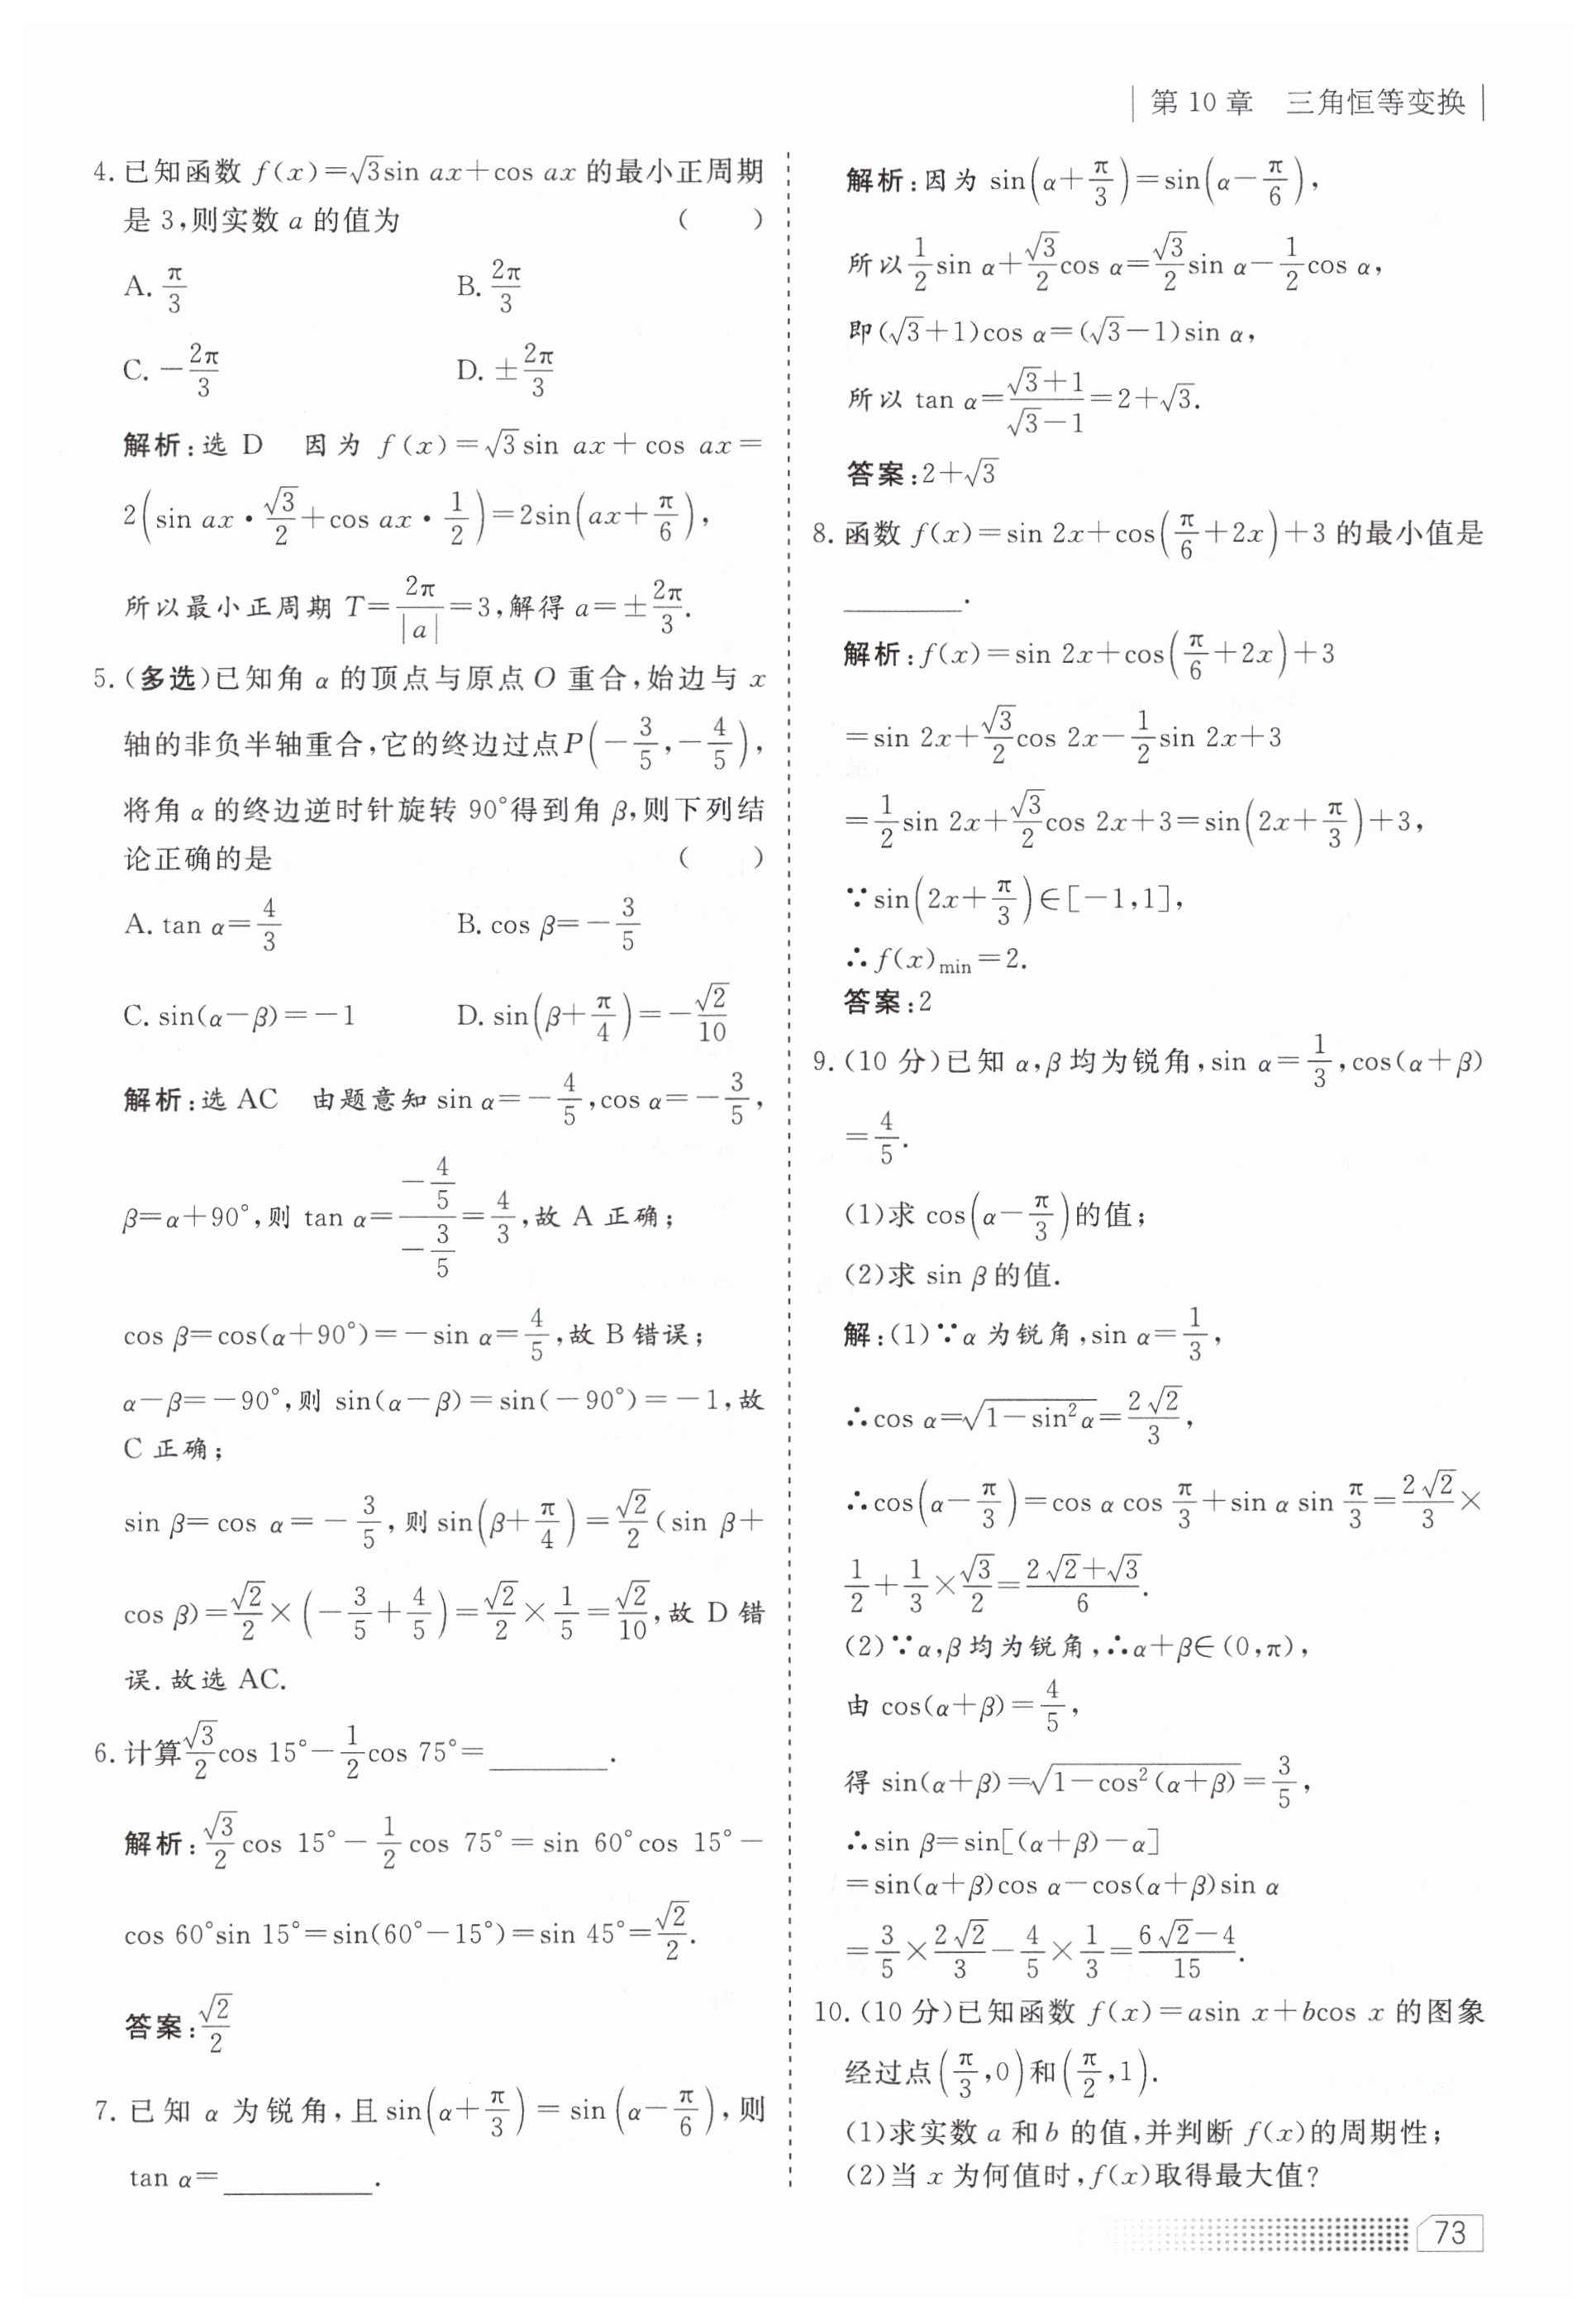 第 10 章　三角恒等变换
4. 已知函数 f(x)=√3sin ax+cos ax 的最小正周期
是 3,则实数 a 的值为 (　　)
A. π/3　B. 2π/3
C. -2π/3　D. ±2π/3
解析:选 D　因为 f(x)=√3sin ax+cos ax=
2(sin ax·√3/2+cos ax·1/2)=2sin(ax+π/6),
所以最小正周期 T=2π/|a|=3,解得 a=±2π/3.
5. (多选)已知角 α 的顶点与原点 O 重合,始边与 x
轴的非负半轴重合,它的终边过点P(-3/5,-4/5),
将角 α 的终边逆时针旋转 90°得到角 β,则下列结
论正确的是 (　　)
A. tan α=4/3　B. cos β=-3/5
C. sin(α-β)=-1　D. sin(β+π/4)=-√2/10
解析:选 AC　由题意知 sin α=-4/5,cos α=-3/5,
β=α+90°,则 tan α=(-4/5)/(-3/5)=4/3,故 A 正确;
cos β=cos(α+90°)=-sin α=4/5,故 B 错误;
α-β=-90°,则 sin(α-β)=sin(-90°)=-1,故
C 正确;
sin β=cos α=-3/5,则 sin(β+π/4)=√2/2(sin β+
cos β)=√2/2×(-3/5+4/5)=√2/2×1/5=√2/10,故 D 错
误.故选 AC.
6. 计算√3/2cos 15°-1/2cos 75°=________.
解析:√3/2cos 15°-1/2cos 75°=sin 60°cos 15°-
cos 60°sin 15°=sin(60°-15°)=sin 45°=√2/2.
答案:√2/2
7. 已知 α 为锐角,且 sin(α+π/3)=sin(α-π/6),则
tan α=__________.
解析:因为 sin(α+π/3)=sin(α-π/6),
所以1/2sin α+√3/2cos α=√3/2sin α-1/2cos α,
即(√3+1)cos α=(√3-1)sin α,
所以 tan α=(√3+1)/(√3-1)=2+√3.
答案:2+√3
8. 函数 f(x)=sin 2x+cos(π/6+2x)+3 的最小值是
________.
解析:f(x)=sin 2x+cos(π/6+2x)+3
=sin 2x+√3/2cos 2x-1/2sin 2x+3
=1/2sin 2x+√3/2cos 2x+3=sin(2x+π/3)+3,
∵sin(2x+π/3)∈[-1,1],
∴f(x)min=2.
答案:2
9. (10 分)已知 α,β 均为锐角,sin α=1/3,cos(α+β)
=4/5.
(1)求 cos(α-π/3)的值;
(2)求 sin β 的值.
解:(1)∵α 为锐角,sin α=1/3,
∴cos α=√(1-sin²α)=2√2/3,
∴cos(α-π/3)=cos α cos π/3+sin α sin π/3=2√2/3×
1/2+1/3×√3/2=(2√2+√3)/6.
(2)∵α,β 均为锐角,∴α+β∈(0,π),
由 cos(α+β)=4/5,
得 sin(α+β)=√(1-cos²(α+β))=3/5,
∴sin β=sin[(α+β)-α]
=sin(α+β)cos α-cos(α+β)sin α
=3/5×2√2/3-4/5×1/3=(6√2-4)/15.
10. (10 分)已知函数 f(x)=asin x+bcos x 的图象
经过点(π/3,0)和(π/2,1).
(1)求实数 a 和 b 的值,并判断 f(x)的周期性;
(2)当 x 为何值时,f(x)取得最大值?
73